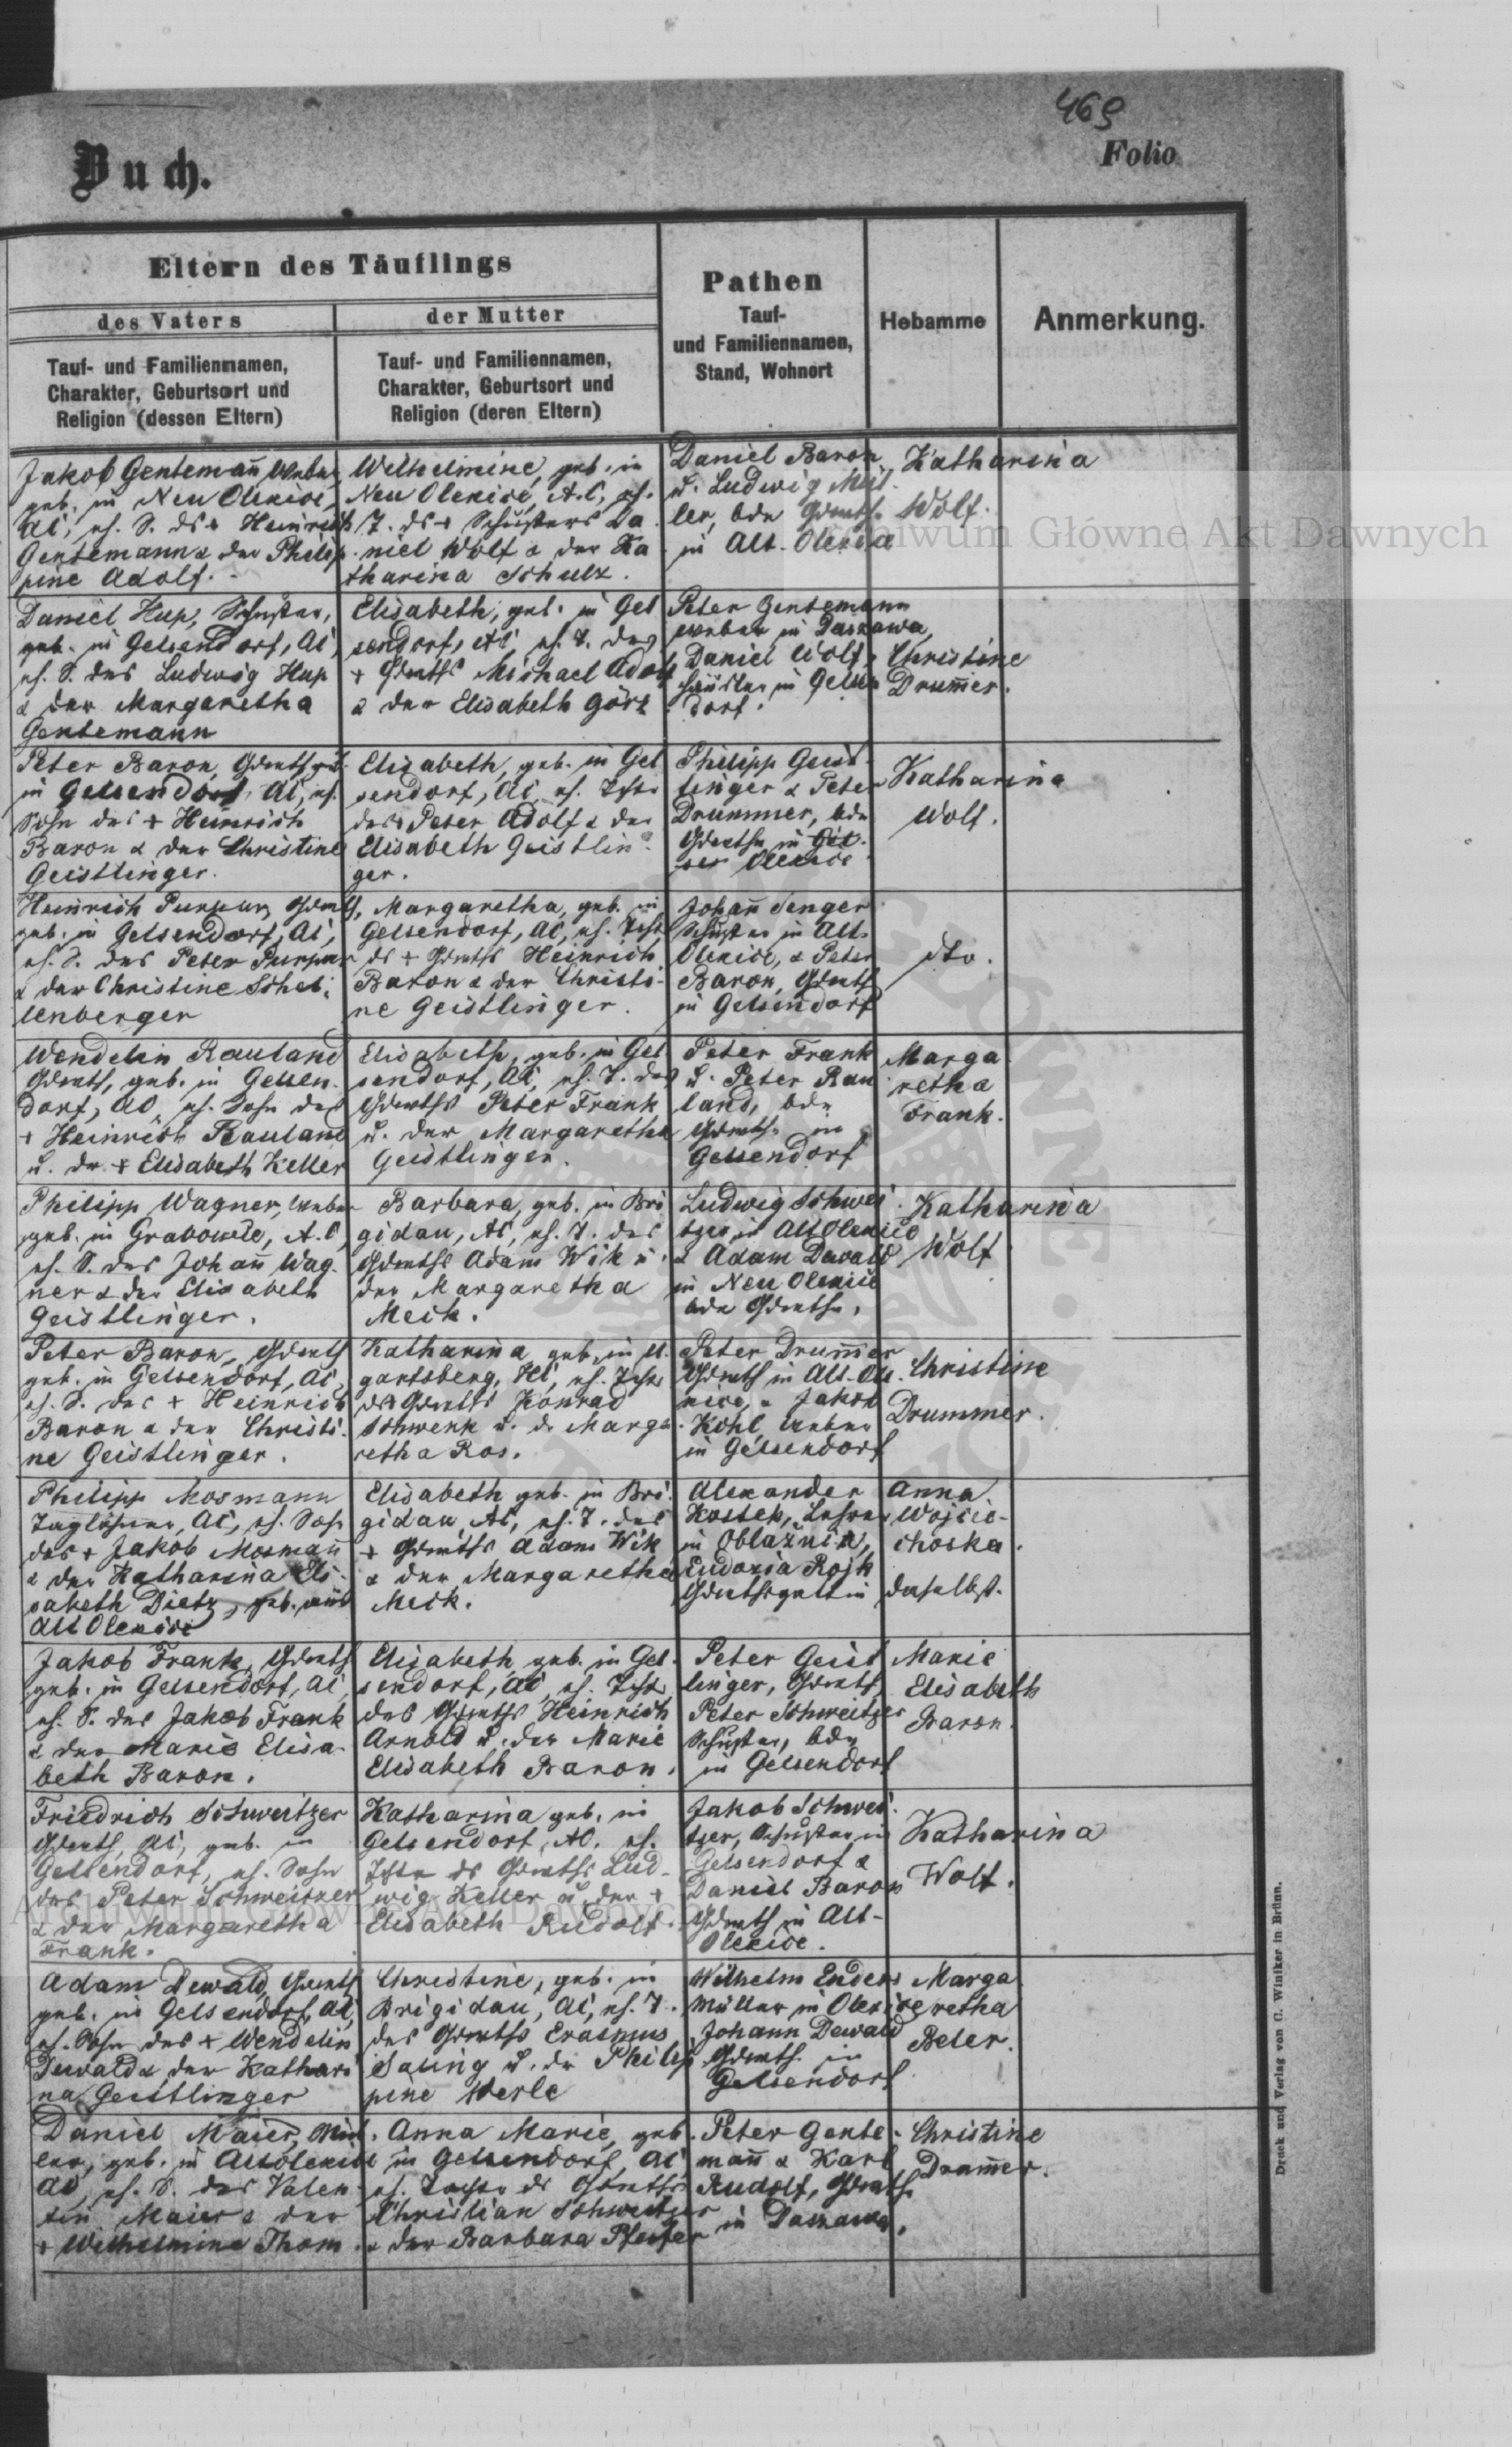 469
Folio
Buch.
Eltern des Täuflings
des Vaters
der Mutter
Tauf- und Familiennamen,
Charakter, Geburtsort und
Religion (dessen Eltern)
Tauf- und Familiennamen,
Charakter, Geburtsort und
Religion (deren Eltern)
Pathen
Tauf-
und Familiennamen,
Stand, Wohnort
Hebamme
Anmerkung.
Jakob Gentemañ Weber,
geb. in Neu Olexice,
AC, eh. S. ds + Heinrich
Gentemann & der Philip
pine Adolf.
Wilhelmine, geb. in
Neu Olexice, A.C, eh.
T. ds + Schusters Da
niel Wolf & der Ka
tharina Schulz.
Daniel Baron
u. Ludwig Mül
ler, bde Grdwths.
in Alt-Olexice
Katharina
Wolf.
Archiwum Główne Akt Dawnych
Daniel Hup, Schuster,
geb. in Gelsendorf, AC,
eh. S. des Ludwig Hup
& der Margaretha
Gentemann
Elisabeth, geb. in Gel
sendorf, AC eh. T. des
+ Grdwths Michael Adolf
& der Elisabeth Görz
Peter Gentemann
Weber in Daszawa,
Daniel Wolf,
Häusler in Gelsen
dorf.
Christine
Drum̄er.
Peter Baron, Grdwth geb.
in Gelsendorf, AC, eh.
Sohn des + Heinrich
Baron & der Christine
Geistlinger.
Elisabeth, geb. in Gel
sendorf, AC eh. Tcht.
des + Peter Adolf & der
Elisabeth Geistlin
ger.
Philipp Geist
linger & Peter
Drummer, bde
Grdwths in
Olexice
Katharina
Wolf.
Heinrich Purpur, Grdwth,
geb. in Gelsendorf, AC,
eh. S. des Peter Purpur
& der Christine Schel
lenberger
Margaretha, geb. in
Gelsendorf, AC, eh. Tcht
ds + Grdwths Heinrich
Baron & der Christi-
ne Geistlinger.
Johañ Senger
Schuster in Alt-
Olexice, & Peter
Baron, Grdwth
in Gelsendorf
dto.
Wendelin Rauland
Grdwth, geb. in Gelsen-
dorf, AC, eh. Sohn des
+ Heinrich Rauland
u. dr + Elisabeth Keller
Elisabeth, geb. in Gel
sendorf, AC, eh. T. des
Grdwths Peter Frank
u. der Margaretha
Geistlinger.
Peter Frank
u. Peter Rau
land, bde
Grdwths in
Gelsendorf
Marga
retha
Frank.
Philipp Wagner, Weber
geb. in A.C,
eh. S. des Johañ Wag
ner & der Elisabeth
Geistlinger.
Barbara, geb. in Bri
gidau, AC, eh. T. des
Grdwths Adam Wik u.
der Margaretha
Meck.
Ludwig Schwei
tzer in Alt Olexice
& Adam Dewald
in Neu Olexice
bde Grdwths.
Katharina
Wolf
Peter Baron, Grdwth
geb. in Gelsendorf, AC,
eh. S. des + Heinrich
Baron & der Christi
ne Geistlinger.
Katharina geb. in U.
gartsberg, HC, eh. Tcht
ds Grdwths Konrad
Schwenk u. dr Marga
retha Ros.
Peter Drum̄er
Grdwth in Alt-Ole
xice, & Jakob
Kohl, Weber
in Gelsendorf
Christine
Drummer.
Philipp Mosmann
Taglöhner, AC, eh. Sohn
des + Jakob Mosmañ
& der Katharina Eli
sabeth Dietz, geb. aus
Alt Olexice
Elisabeth geb. in Bri
gidau AC, eh. T. des
+ Grdwths Adam Wik
& der Margaretha
Meck.
Alexander
Kostek, Lehrer
in Oblaźnica,
Eudoxia Rojk
Grdwthsgattin
Anna
Wojcie-
choska.
daselbst.
Jakob Frank, Grdwth
geb. in Gelsendorf, AC
eh. S. des Jakob Frank
& der Marie Elisa-
beth Baron.
Elisabeth, geb. in Gel
sendorf, AC, eh. Tcht
des Grdwths Heinrich
Arnold u. der Marie
Elisabeth Baron.
Peter Geist
linger, Grdwth
Peter Schweitzer
Schuster, bde
in Gelsendorf
Marie
Elisabeth
Baron.
Friedrich Schweitzer
Grdwth, AC, geb. in
Gelsendorf, eh. Sohn
des Peter Schweitzer
& der Margaretha
Frank.
Katharina geb. in
Gelsendorf, AC. eh.
Tchter ds Grdwths Lud-
wig Keller u. der +
Elisabeth Rudolf.
Jakob Schwei
tzer, Schuster in
Gelsendorf &
Daniel Baron
Grdwth in Alt-
Olexice.
Katharina
Wolf.
Archiwum Główne Akt Dawnych
Adam Dewald, Grdwth
geb. in Gelsendorf, AC,
eh. Sohn des + Wendelin
Dewald & der Kathari
na Geistlinger
Christine, geb. in
Brigidau, AC, eh. T.
des Grdwths Erasmus
Saling u. dr Philip
pine Werle
Wilhelm Enders
Müller in Olexice
Johann Dewald
Grdwth. in
Gelsendorf
Marga
retha
Beler.
Daniel Maier, Mül
ler, geb. in Altolexice
AC, eh. S. des Valen
tin Maier & der
+ Wilhelmine Thom.
Anna Marie, geb.
in Gelsendorf, AC
eh. Tochter ds Grdwths
Christian Schweitzer
& der Barbara Pfeifer
Peter Gente-
mañ & Karl
Rudolf, Grdwths
in Daszawa.
Christine
Drum̄er.
Druck und Verlag von C. Winiker in Brünn.